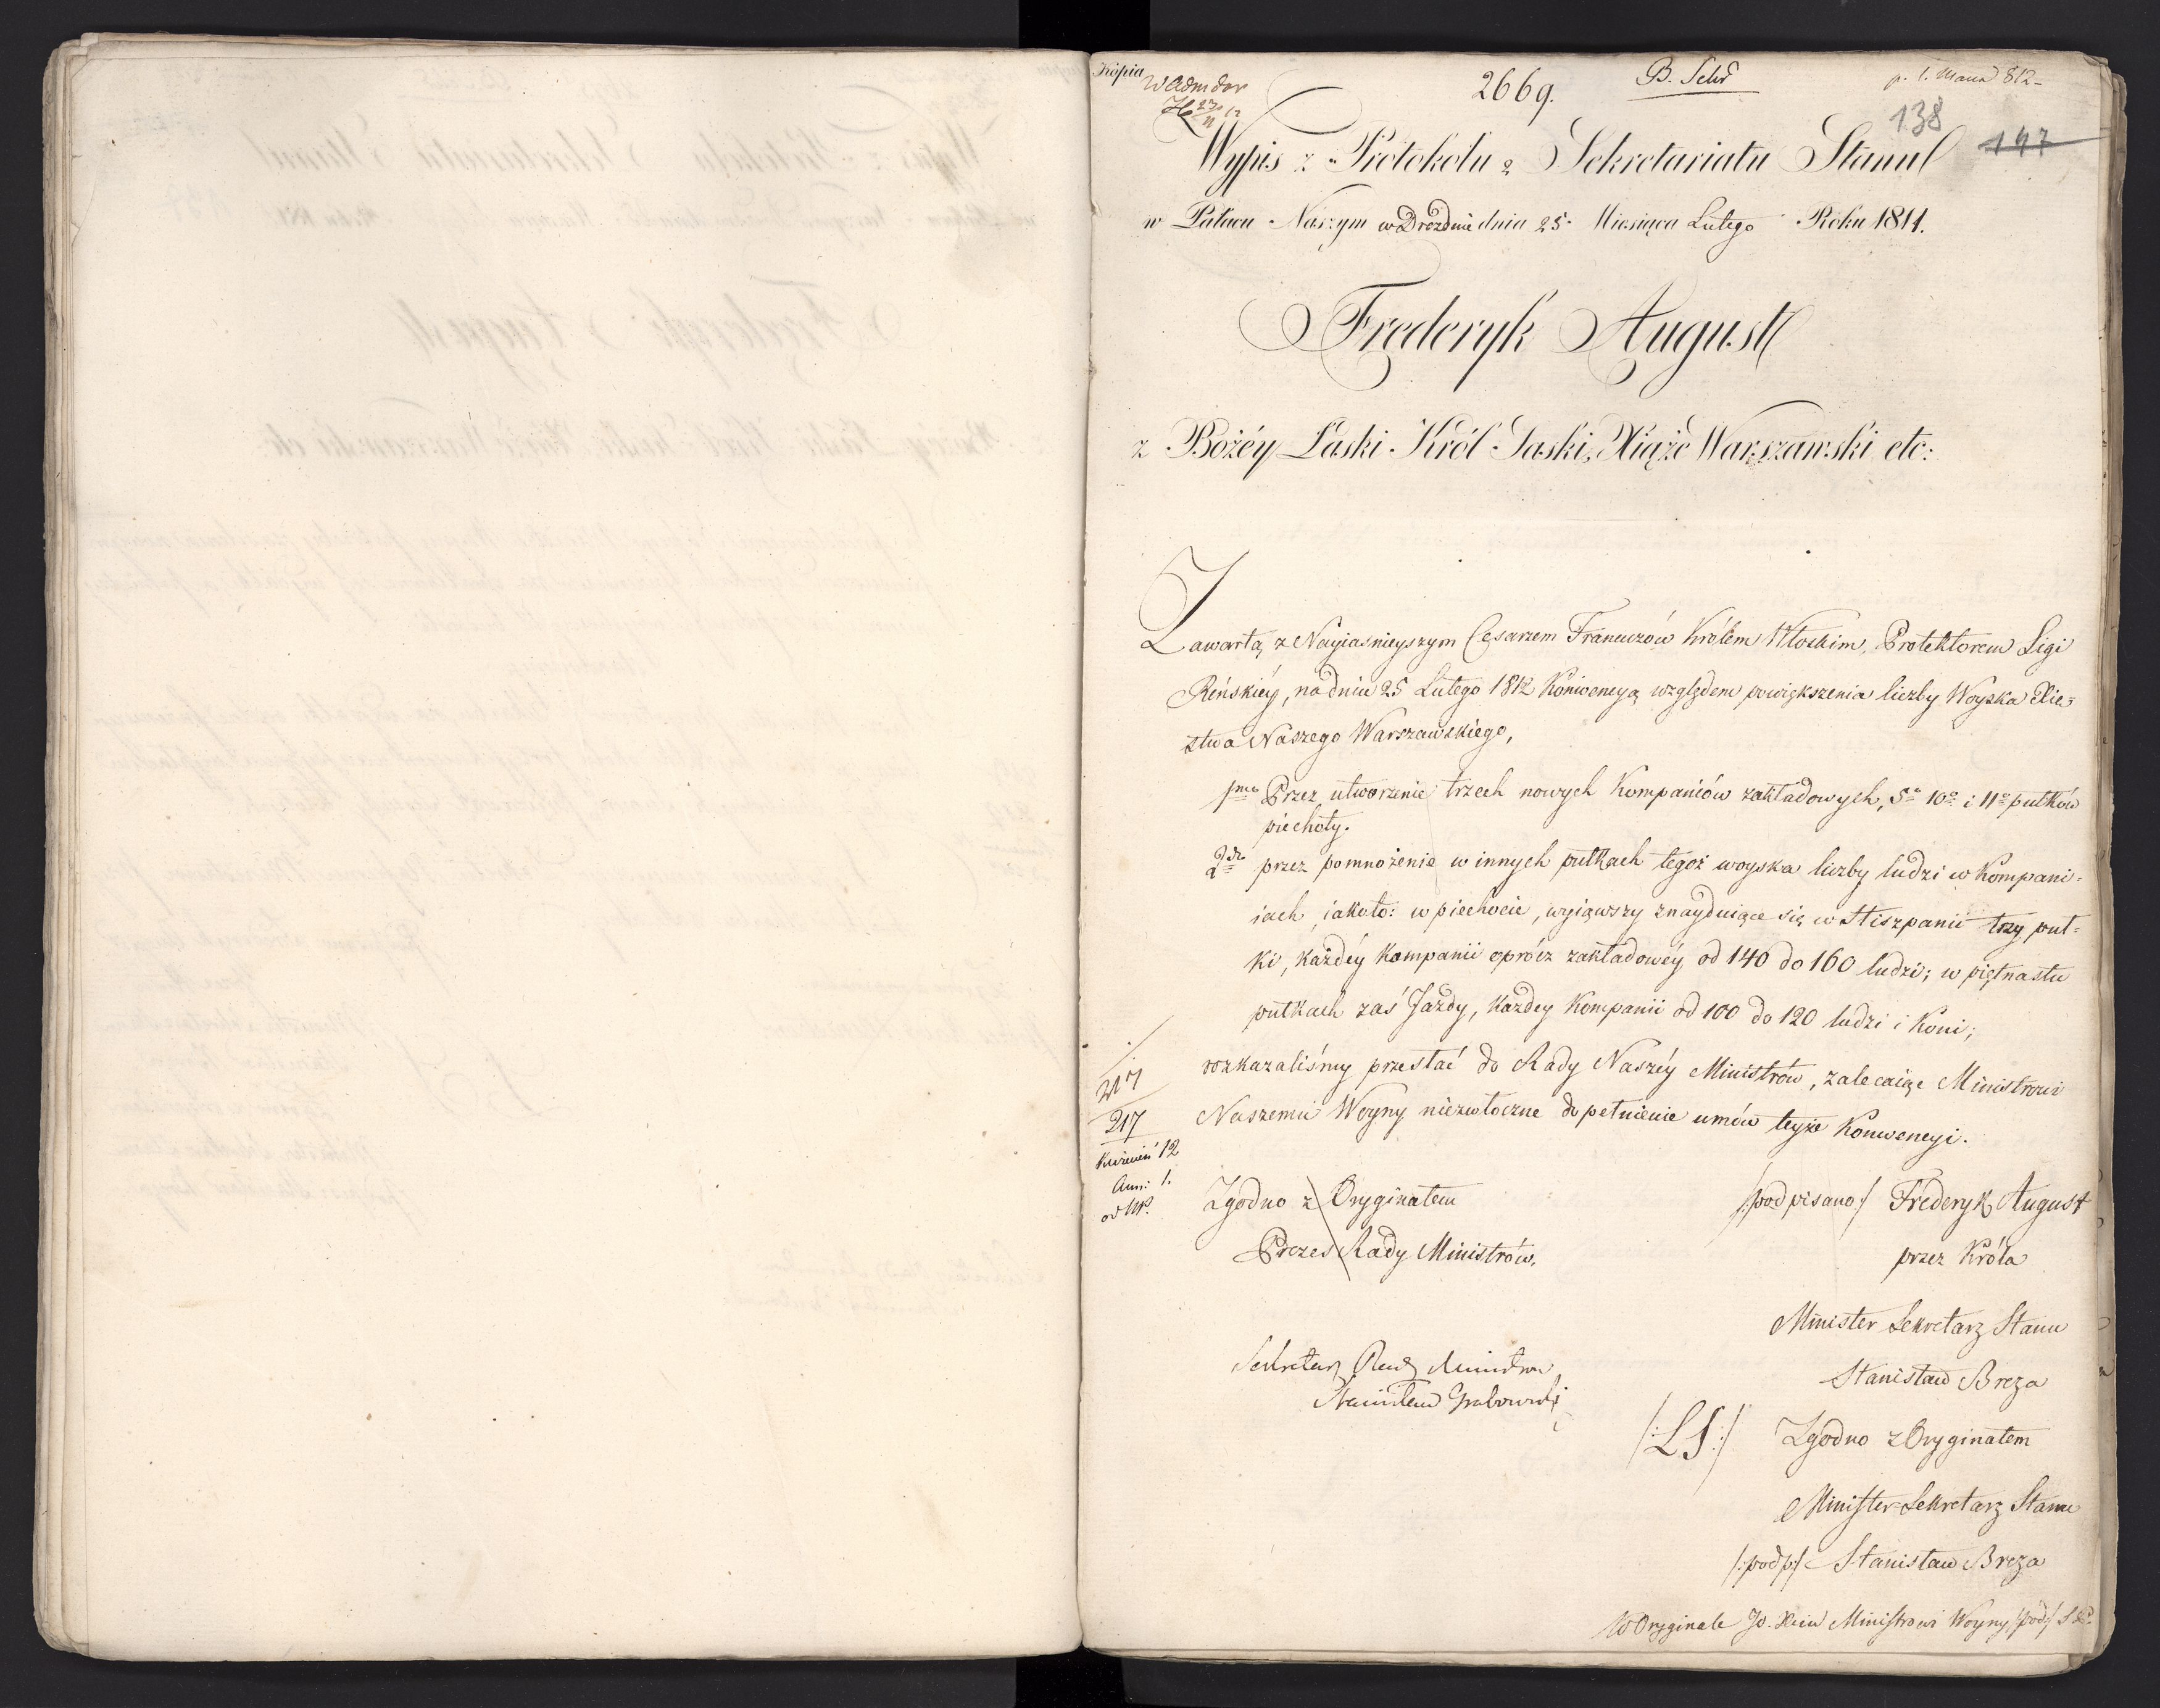 Kópia
2669.
B. Schr
138
147
Wypis z Protokołu Sekretariatu Stanu
w Pałacu Naszym w Dreźdnie dnia 25. Miesiąca Lutego Roku 1811.
Frederyk August
z Bożéy Łaski Król Saski, Xiąże Warszawski etc:
Zawartą z Nayiasnieyszym Cesarzem Francuzów Królem Włoskim, Protektorem Ligi
Reńskiéy, na dniu 25 Lutego 1812 Konwencyą względem powiększenia liczby Woyska Xie=
stwa Naszego Warszawskiego,
1mo Przez utworzenie trzech nowych Kompaniów zakładowych, 5o 10o i 11o pułków
piechoty.
2do przez pomnożenie w innych pułkach tegoż woyska liczby ludzi w Kompani=
iach, iakoto: w piechocie, wyiąwszy znayduiące się w Hiszpanii trzy puł=
ki, każdéy Kompanii oprócz zakładowéy od 140 do 160 ludzi; w piętnastu
pułkach zaś Jazdy, każdey Kompanii od 100 do 120 ludzi i Koni;
rozkazaliśmy przesłać do Rady Naszéy Ministrów, zalecaiąc Ministrowi
Naszemu Woyny niezwłoczne dopełnienie umów teyże Konwencyi.
217
217
Kwiecień 12
Zgodno z Oryginałem
Prezes Rady Ministrów,
/:podpisano:/ Fréderyk August
przez Króla
Minister Sekretarz Stanu
Stanisław Breza
Sekretarz Rady Ministrów
Stanisław Grabowski
/:LS:/ Zgodno z Oryginałem
Minister Sekretarz Stanu
/:podp:/ Stanisław Breza
W Oryginale JO. Xciu Ministrowi Woyny,